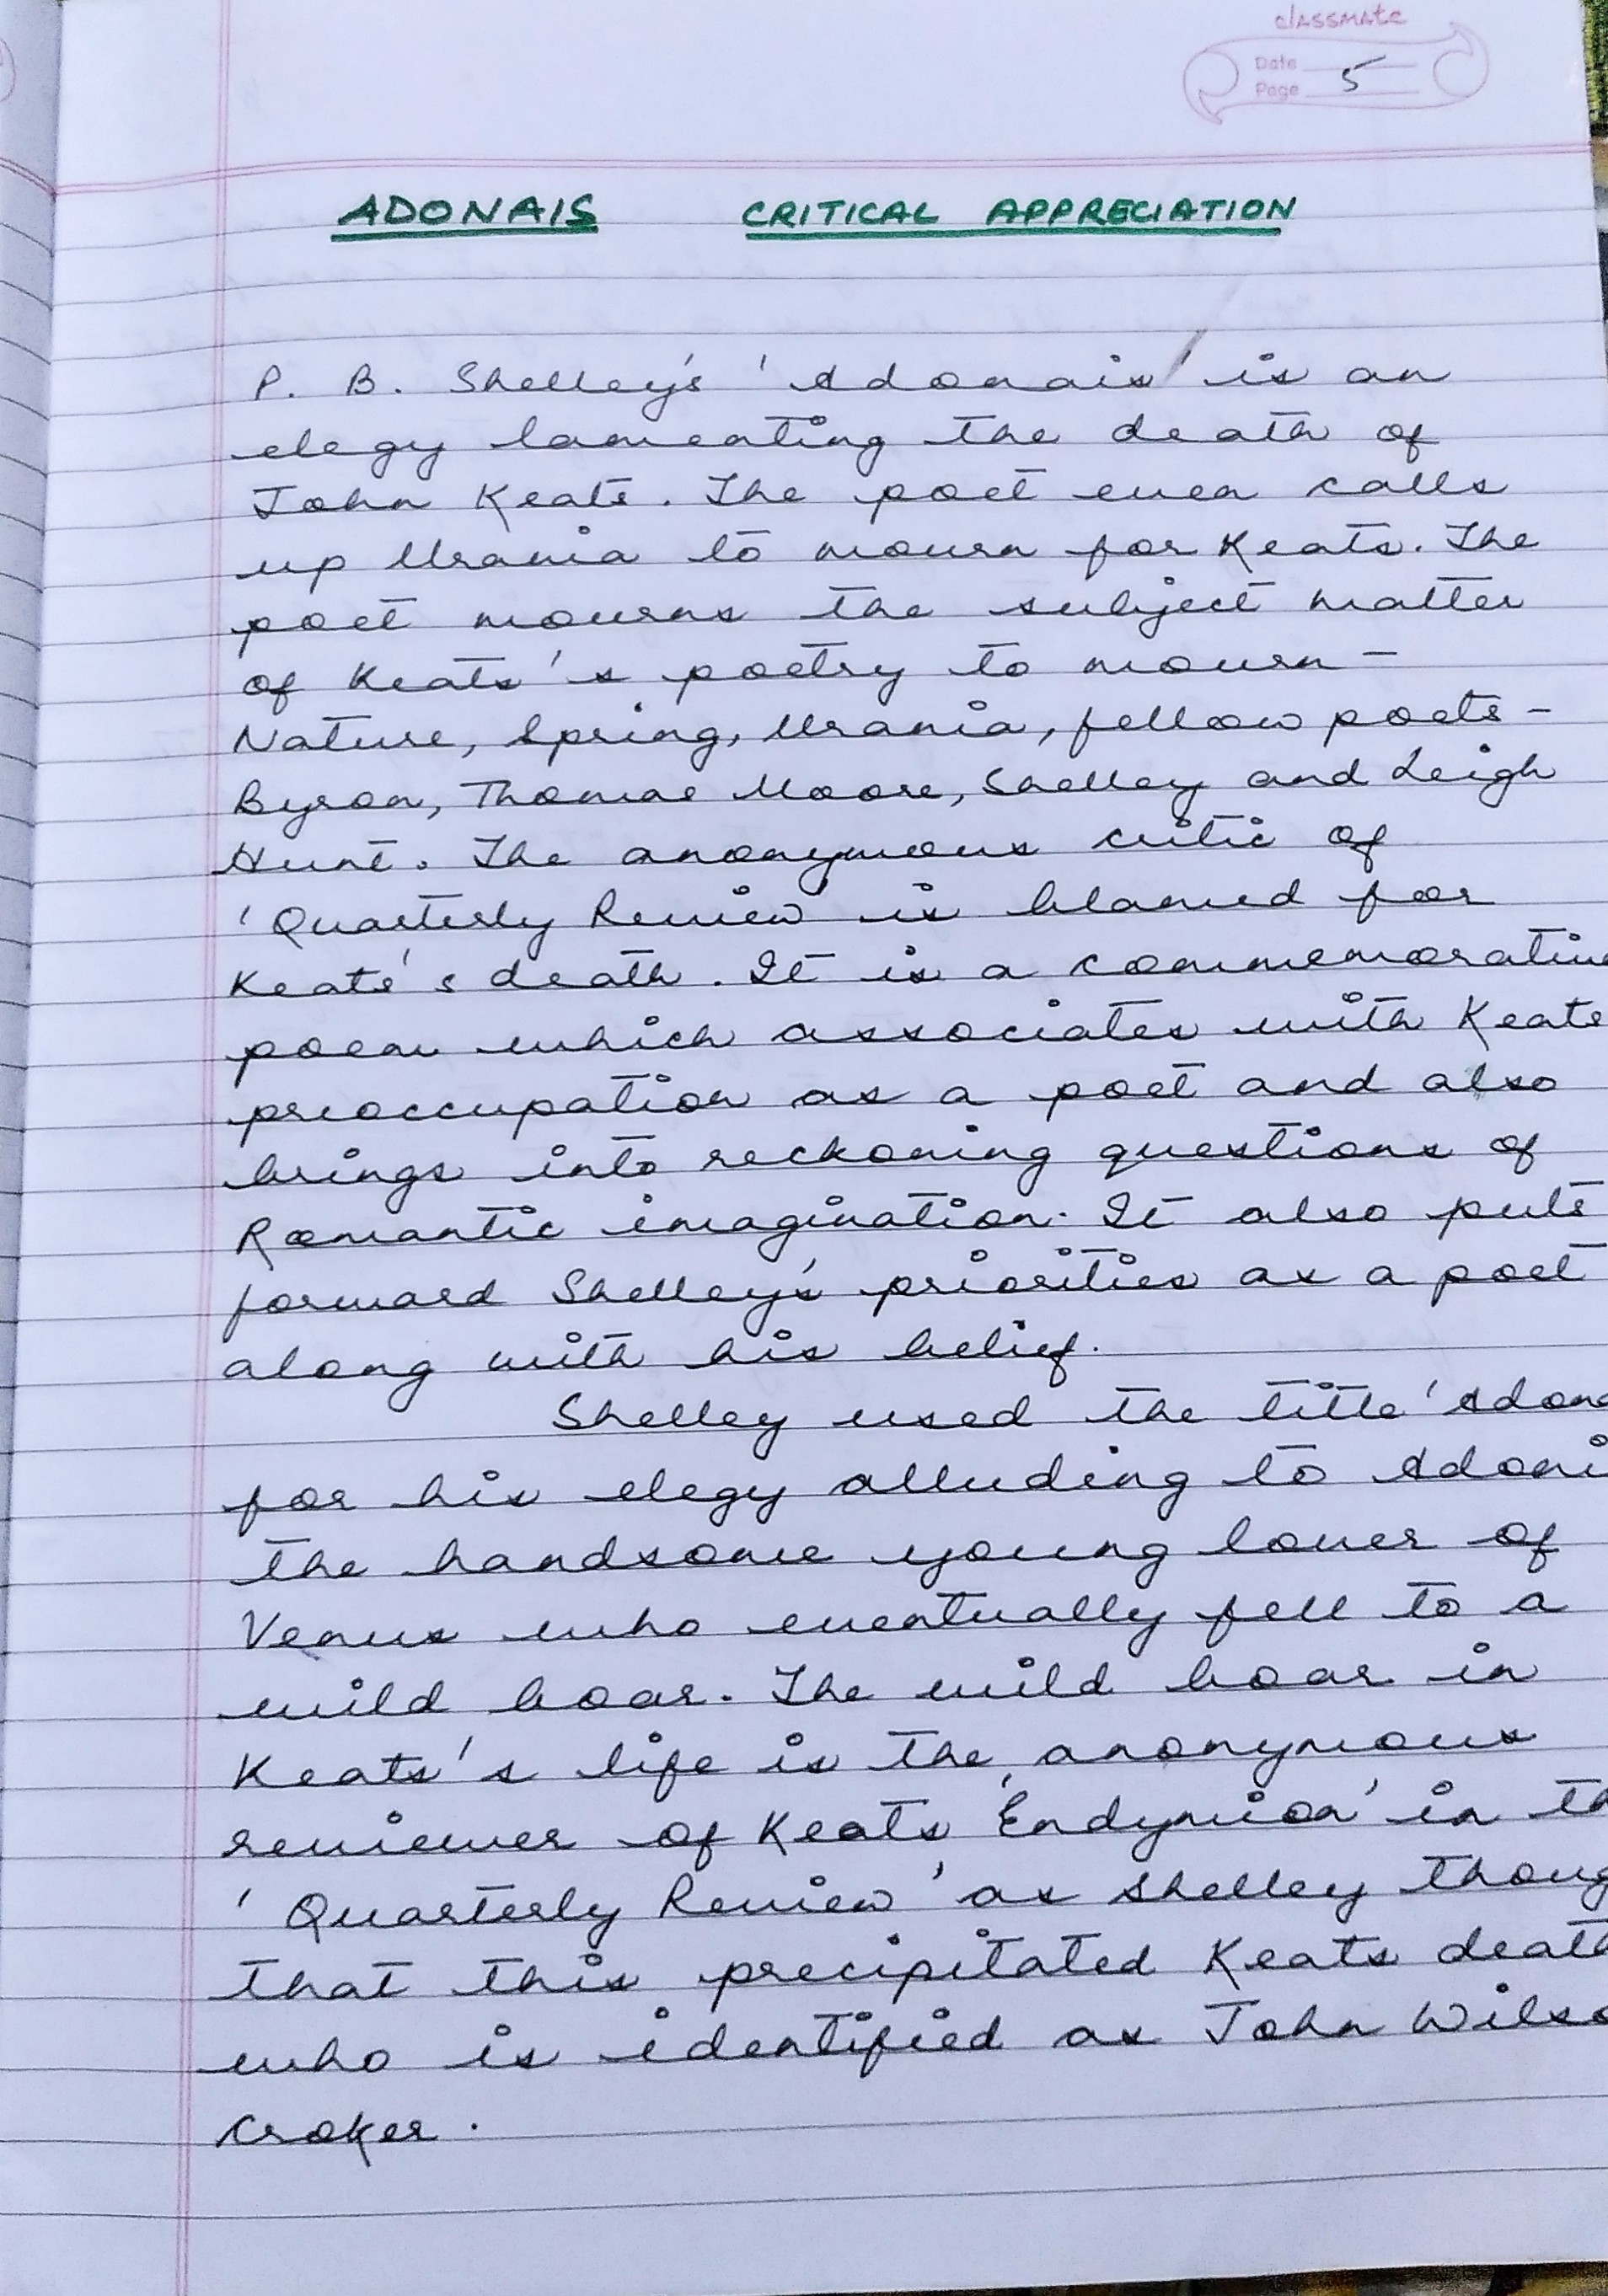 classmate
Date
Page 5
ADONAIS CRITICAL APPRECIATION
P. B. Shelley's 'Adonais' is an
elegy lamenting the death of
John Keats. The poet even calls
up Urania to mourn for Keats. The
poet mourns the subject matter
of Keats's poetry to mourn -
Nature, Spring, Urania, fellow poets -
Byron, Thomas Moore, Shelley and Leigh
Hunt. The anonymous critic of
'Quarterly Review' is blamed for
Keats's death. It is a commemorative
poem which associates with Keats
preoccupation as a poet and also
brings into reckoning questions of
Romantic imagination. It also puts
forward Shelley's priorities as a poet
along with his belief.
Shelley used the title 'Adona
for his elegy alluding to Adoni
the handsome young lover of
Venus who eventually fell to a
wild boar. The wild boar in
Keats's life is the anonymous
reviewer of Keats 'Endymion' in th
'Quarterly Review' as Shelley thoug
that this precipitated Keats death
who is identified as John Wilso
Croker.